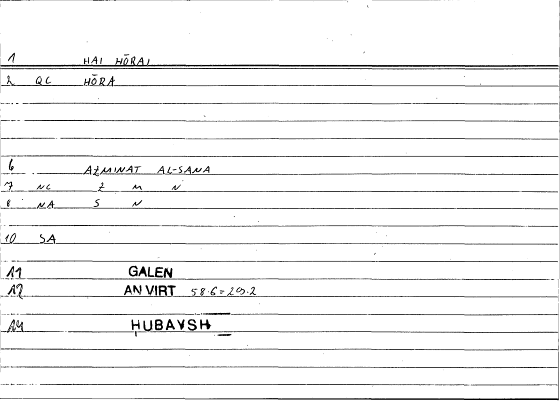 1 HAI HŌRAI
2 QC HŌRA
6 AZMINAT AL-SANA
7 NC Z M N
8 NA S N
10 SA
11 GALEN
12 AN VIRT 58.6=29.2
14 ḤUBAYSH